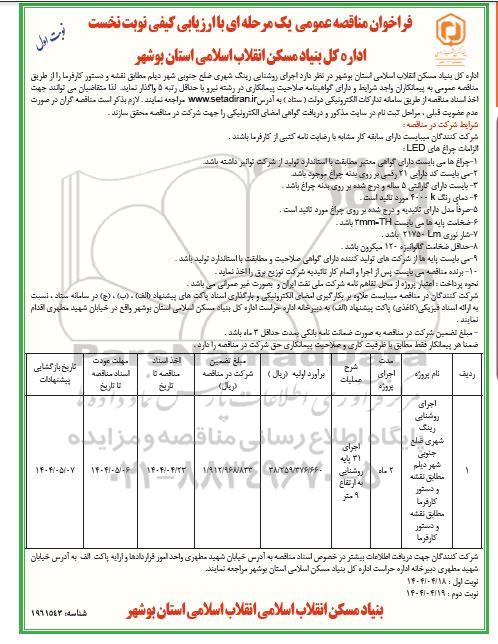 فراخوان مناقصه عمومی یک مرحله ای با ارزیابی کیفی نوبت نخست
نوبت اول
اداره کل بنیاد مسکن انقلاب اسلامی استان بوشهر
اداره کل بنیاد مسکن انقلاب اسلامی استان بوشهر در نظر دارد اجرای روشنایی رینگ شهری ضلع جنوبی شهر دیلم مطابق نقشه و دستور کارفرما را از طریق
مناقصه عمومی به پیمانکاران واجد شرایط و دارای گواهینامه صلاحیت پیمانکاری در رشته نیرو با حداقل رتبه ۵ واگذار نماید. لذا متقاضیان می توانند جهت
اخذ اسناد مناقصه از طریق سامانه تدارکات الکترونیکی دولت ( ستاد ) به آدرس www.setadiran.ir مراجعه نمایند . لازم بذکر است مناقصه گران در صورت
عدم عضویت قبلی ، مراحل ثبت نام در سایت مذکور و دریافت گواهی امضای الکترونیکی را جهت شرکت در مناقصه محقق سازند .
شرایط شرکت در مناقصه :
شرکت کنندگان میبایست دارای سابقه کار مشابه با رضایت نامه کتبی از کارفرما باشند .
الزامات چراغ های LED :
۱-چراغ ها می بایست دارای گواهی معتبر مطابقت با استاندارد تولید از شرکت توانیر داشته باشد.
۲-می بایست کد دارایی ۲۱ رقمی بر روی بدنه چراغ موجود باشد.
۳- بایست دارای گارانتی ۵ ساله و درج شده بر روی بدنه چراغ باشد .
۴- دمای رنگ ۴۰۰۰ k مورد تائید است .
۵-صرفاً مدل دارای تائیدیه و درج شده بر روی چراغ مورد تائید است .
۶-ضخامت پایه ها می بایست ۳mm=TH باشد .
۷-شار نوری ۲۱۷۵۰ Lm باشد .
۸-حداقل ضخامت گالوانیزه ۱۲۰ میکرون باشد .
۹-می بایست پایه ها از شرکت های تولید کننده دارای گواهی صلاحیت و مطابقت با استاندارد تولید باشد .
۱۰- برنده مناقصه می بایست پس از اجرا و اتمام کار تائیدیه شرکت توزیع برق را اخذ نماید .
نحوه پرداخت : اعتبار پروژه از محل تفاهم نامه شرکت ملی نفت ایران و بصورت غیر عمرانی می باشد .
شرکت کنندگان در مناقصه میبایست علاوه بر بکارگیری امضای الکترونیکی و بارگذاری اسناد پاکت های پیشنهاد (الف) ، (ب) ، (ج) در سامانه ستاد ، نسبت
به ارائه اسناد فیزیکی(کاغذی) پاکت پیشنهاد (الف) به دبیرخانه اداره حراست اداره کل بنیاد مسکن انقلاب اسلامی استان بوشهر واقع در خیابان شهید مطهری اقدام
نمایند .
- مبلغ تضمین شرکت در مناقصه به صورت ضمانت نامه بانکی بمدت حداقل ۳ ماه باشد .
ضمنا هر پیمانکار فقط مطابق با ظرفیت کاری و صلاحیت پیمانکاری حق شرکت در مناقصه را دارد .
ردیف | نام پروژه | مدت اجرای پروژه | شرح عملیات | برآورد اولیه (ریال ) | مبلغ تضمین شرکت در مناقصه (ریال) | اخذ اسناد مناقصه تا تاریخ | مهلت عودت اسناد مناقصه تا تاریخ | تاریخ بازگشایی پیشنهادات
۱ | اجرای روشنایی رینگ شهری ضلع جنوبی شهر دیلم مطابق نقشه و دستور کارفرما مطابق نقشه و دستور کارفرما | ۲ ماه | اجرای ۳۱ پایه روشنایی به ارتفاع ۹ متر | ۳۸/۲۵۹/۳۷۶/۶۶۰ | ۱/۹۱۲/۹۶۸/۸۳۳ | ۱۴۰۴/۰۴/۲۳ | ۱۴۰۴/۰۵/۰۶ | ۱۴۰۴/۰۵/۰۷
ParsNamadData
مرکز فرآوری اطلاعات پارس نماد داده ها
پایگاه اطلاع رسانی مناقصه و مزایده
۰۲۱-۸۸۳۴۹۶۷۰-۵
شرکت کنندگان جهت دریافت اطلاعات بیشتر در خصوص اسناد مناقصه به آدرس خیابان شهید مطهری واحد امور قراردادها و ارایه پاکت الف به آدرس خیابان
شهید مطهری دبیرخانه اداره حراست اداره کل بنیاد مسکن اسلامی استان بوشهر مراجعه نمایند.
نوبت اول : ۱۴۰۴/۰۴/۱۸
نوبت دوم : ۱۴۰۴/۰۴/۱۹
بنیاد مسکن انقلاب اسلامی انقلاب اسلامی استان بوشهر
شناسه: ۱۹۶۱۵۴۳